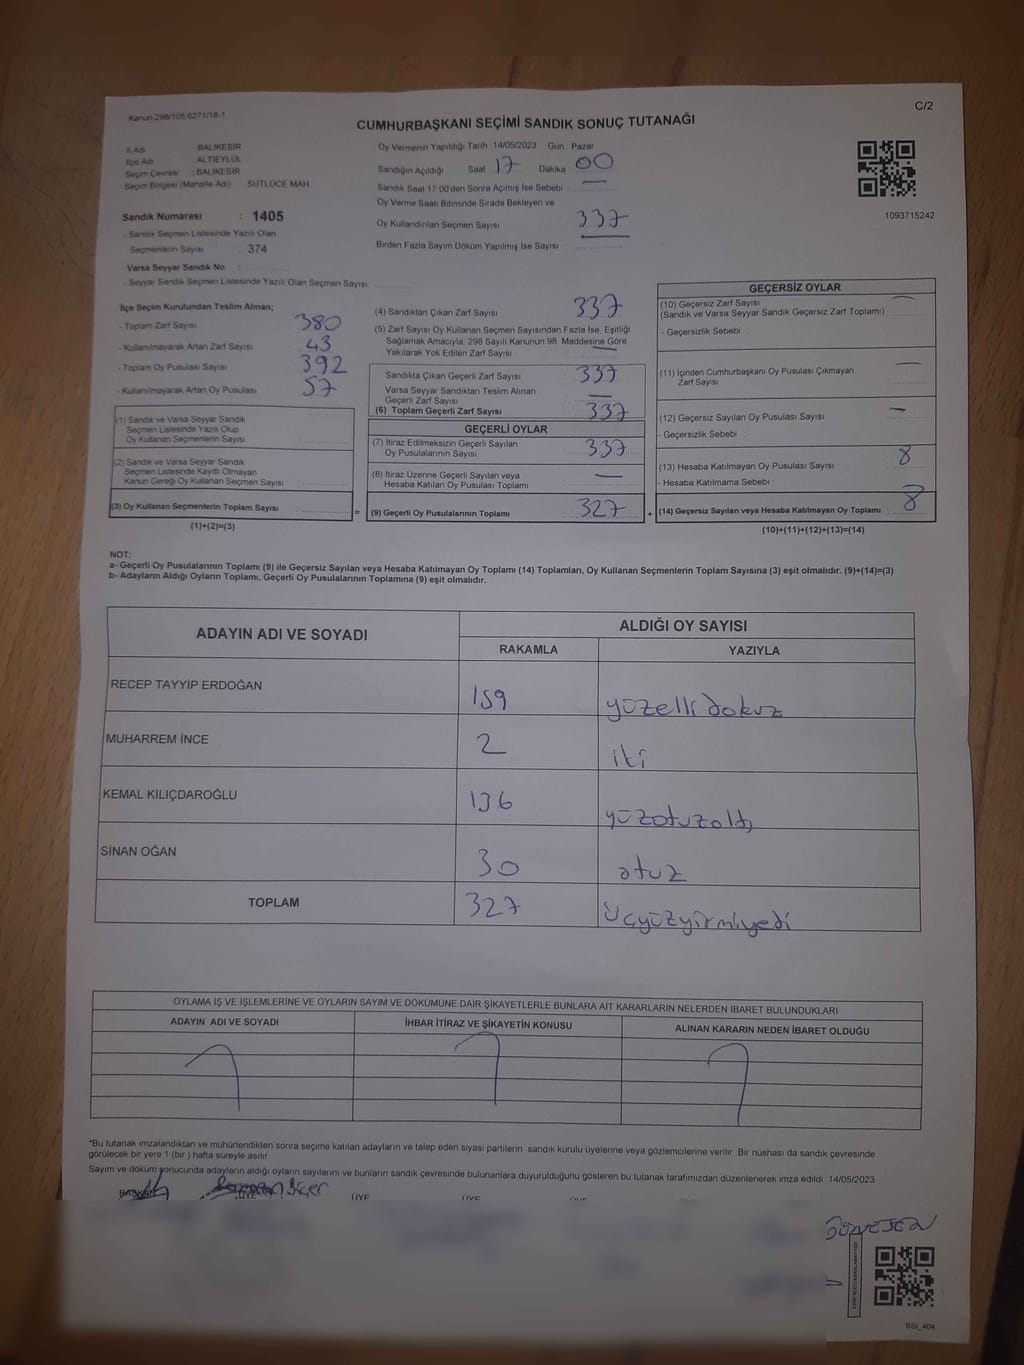 C/2
Kanun 298/105,6271/18-1
CUMHURBAŞKANI SEÇİMİ SANDIK SONUÇ TUTANAĞI
İl Adı BALIKESİR
İlçe Adı ALTIEYLÜL
Seçim Çevresi : BALIKESİR
Seçim Bölgesi (Mahalle Adı) SÜTLÜCE MAH.
Sandık Numarası : 1405
- Sandık Seçmen Listesinde Yazılı Olan
Seçmenlerin Sayısı : 374
Varsa Seyyar Sandık No :
- Seyyar Sandık Seçmen Listesinde Yazılı Olan Seçmen Sayısı
Oy Vermenin Yapıldığı Tarih 14/05/2023 Gün : Pazar
Sandığın Açıldığı Saat 17 Dakika 00
Sandık Saat 17:00'den Sonra Açımış İse Sebebi —
Oy Verme Saati Bitiminde Sırada Bekleyen ve
Oy Kullandırılan Seçmen Sayısı 337
Birden Fazla Sayım Döküm Yapılmış İse Sayısı
1093715242
İlçe Seçim Kurulundan Teslim Alınan;
- Toplam Zarf Sayısı 380
- Kullanılmayarak Artan Zarf Sayısı 43
- Toplam Oy Pusulası Sayısı 392
- Kullanılmayarak Artan Oy Pusulası 57
(1) Sandık ve Varsa Seyyar Sandık
Seçmen Listesinde Yazılı Olup
Oy Kullanan Seçmenlerin Sayısı
(2) Sandık ve Varsa Seyyar Sandık
Seçmen Listesinde Kayıtlı Olmayan
Kanun Gereği Oy Kullanan Seçmen Sayısı
(3) Oy Kullanan Seçmenlerin Toplam Sayısı
(1)+(2)=(3)
(4) Sandıktan Çıkan Zarf Sayısı 337
(5) Zarf Sayısı Oy Kullanan Seçmen Sayısından Fazla İse, Eşitliği
Sağlamak Amacıyla, 298 Sayılı Kanunun 98. Maddesine Göre
Yakılarak Yok Edilen Zarf Sayısı —
Sandıkta Çıkan Geçerli Zarf Sayısı 337
Varsa Seyyar Sandıktan Teslim Alınan
Geçerli Zarf Sayısı —
(6) Toplam Geçerli Zarf Sayısı 337
GEÇERLİ OYLAR
(7) İtiraz Edilmeksizin Geçerli Sayılan
Oy Pusulalarının Sayısı 337
(8) İtiraz Üzerine Geçerli Sayılan veya
Hesaba Katılan Oy Pusulası Toplamı —
= (9) Geçerli Oy Pusulalarının Toplamı 327 +
GEÇERSİZ OYLAR
(10) Geçersiz Zarf Sayısı —
(Sandık ve Varsa Seyyar Sandık Geçersiz Zarf Toplamı)
- Geçersizlik Sebebi :
(11) İçinden Cumhurbaşkanı Oy Pusulası Çıkmayan —
Zarf Sayısı
(12) Geçersiz Sayılan Oy Pusulası Sayısı —
- Geçersizlik Sebebi :
(13) Hesaba Katılmayan Oy Pusulası Sayısı 8
- Hesaba Katılmama Sebebi :
(14) Geçersiz Sayılan veya Hesaba Katılmayan Oy Toplamı 8
(10)+(11)+(12)+(13)=(14)
NOT:
a- Geçerli Oy Pusulalarının Toplamı (9) ile Geçersiz Sayılan veya Hesaba Katılmayan Oy Toplamı (14) Toplamları, Oy Kullanan Seçmenlerin Toplam Sayısına (3) eşit olmalıdır. (9)+(14)=(3)
b- Adayların Aldığı Oyların Toplamı, Geçerli Oy Pusulalarının Toplamına (9) eşit olmalıdır.
ADAYIN ADI VE SOYADI ALDIĞI OY SAYISI
RAKAMLA YAZIYLA
RECEP TAYYİP ERDOĞAN 159 yüzellidokuz
MUHARREM İNCE 2 iki
KEMAL KILIÇDAROĞLU 136 yüzotuzaltı
SİNAN OĞAN 30 otuz
TOPLAM 327 Üçyüzyirmiyedi
OYLAMA İŞ VE İŞLEMLERİNE VE OYLARIN SAYIM VE DÖKÜMÜNE DAİR ŞİKAYETLERLE BUNLARA AİT KARARLARIN NELERDEN İBARET BULUNDUKLARI
ADAYIN ADI VE SOYADI İHBAR İTİRAZ VE ŞİKAYETİN KONUSU ALINAN KARARIN NEDEN İBARET OLDUĞU
*Bu tutanak imzalandıktan ve mühürlendikten sonra seçime katılan adayların ve talep eden siyasi partilerin sandık kurulu üyelerine veya gözlemcilerine verilir. Bir nüshası da sandık çevresinde
görülecek bir yere 1 (bir ) hafta süreyle asılır.
Sayım ve döküm sonucunda adayların aldığı oyların sayılarını ve bunların sandık çevresinde bulunanlara duyurulduğunu gösteren bu tutanak tarafımızdan düzenlenerek imza edildi. 14/05/2023
BAŞKAN ÜYE ÜYE ÜYE ÜYE
SSİ_404